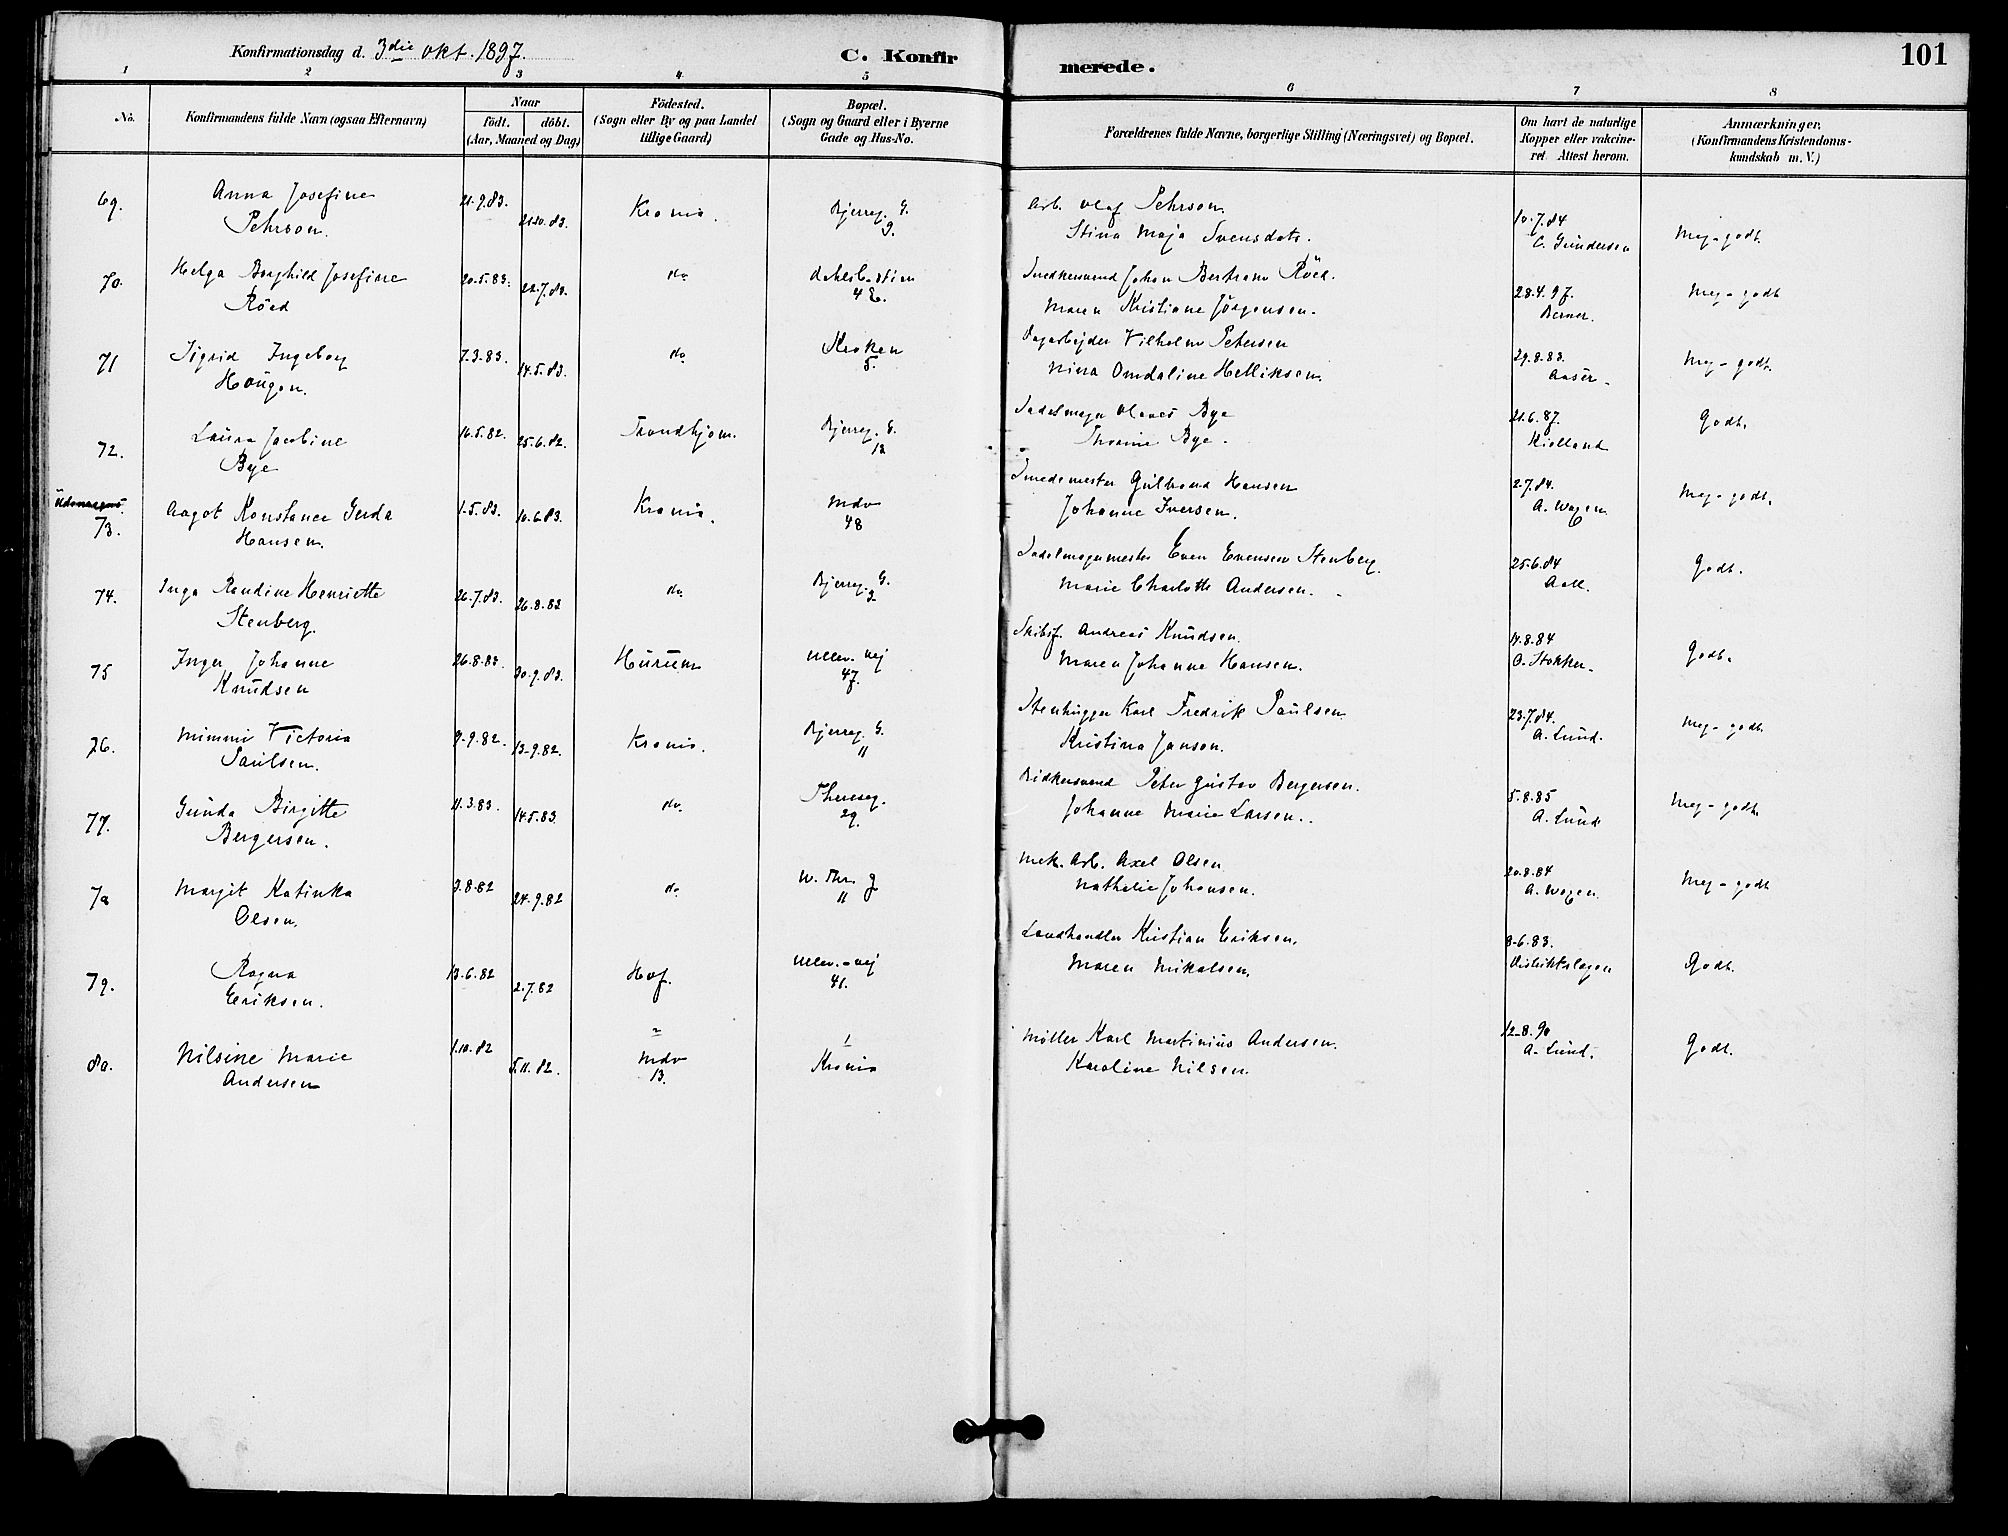 Konfirmationsdag d. 3die Okt. 1897.
C. Konfirmerede.
101
1 2 3 4 5 6 7 8
No.
Konfirmandens fulde Navn (ogsaa Efternavn)
Naar
födt. döbt.
(Aar, Maaned og Dag)
Födested.
(Sogn eller By og paa Landet
tillige Gaard)
Bopæl.
(Sogn og Gaard eller i Byerne
Gade og Hus-No.
Forældrenes fulde Navne, borgerlige Stilling (Næringsvei) og Bopæl.
Om havt de naturlige
Kopper eller vakcine-
ret. Attest herom.
Anmærkninger.
(Konfirmandens Kristendoms-
kundskab m. V.)
69. Anna Josefine 21.9.83. Krania. Bjerreg. G. Arb. Olaf Pehrson. 10.7.84 Meg-godt.
Pehrson. 21.10.83. 9. Stina Maja Svensdatr. C. Gundersen
70. Helga Borghild Josefine 20.5.83. do Snedkersvend Johan Bertram Röed. 28.4.97. Meg-godt
Röed 22.7.83. 4 Maren Kristiane Jörgensen. Berner.
71 Sigrid Ingeborg 7.3.83. do Kroken Dagarbejder Vilhelm Petersen 29.8.83. Meg-godt.
Haugen. 14.5.83. 5. Nina Omdaline Helliksen.
72. Laura Jacobine 16.5.82. Trondhjem. Bjerreg. G. Sadelmager Bye 21.6.87. Godt.
Bye 25.6.82. 12 Bye. Kielland
73. Aagot Konstance Gerda 1.5.83. Krania. Mdv Smedemester Gulbrand Hansen 2.7.84. Meg-godt.
Hansen. 10.6.83. 48 Johanne Iversen. A. Wagen
74. Inga Randine Henriette 26.7.83. do Bjerreg. G. Sadelmagermester Even Evensen Stenberg. 25.6.84 Godt.
Stenberg. 26.8.83 3 Marie Charlotte Andersen. Aall.
75 Inger Johanne 26.8.83. Hurum Ullev. vej Skibsf. Andreas Knudsen. 14.8.84 Godt.
Knudsen 30.9.83. 47. Maren Johanne Hansen. O. Stokker.
76. Mimmi Victoria 9.9.82. Krania. Bjerreg. G. Stenhugger Karl Fredrik Paulsen 23.7.84. Meg-godt.
Paulsen. 13.9.82. 11 Kristina Janson. A. Lund.
77. Gunda Birgitte 11.3.83. do. Thereseg. Bødkersvend Peter Gustav Bergersen. 5.8.85 Meg-godt.
Bergersen. 14.5.83. 29. Johanne Marie Larsen. A. Lund
78 Margit Katinka 3.8.82 do W. Thr. g Mek. Arb. Axel Olsen 20.8.84 Meg-godt
Olsen. 24.9.82 11 Nathalie Johansen. A. Wagen.
79. Ragna 13.6.82 Hof. Ullev.-vej Landhandler Kristian Eriksen. 8.6.83. Godt.
Eriksen. 2.7.82 41. Maren Mikalsen. Distriktslægen
80. Nilsine Marie 1.10.82 2 Mdv 1 Møller Karl Martinius Andersen. 12.8.90 Godt.
Andersen 5.11.82. 13. Krania Karoline Nilsen. A. Lund.